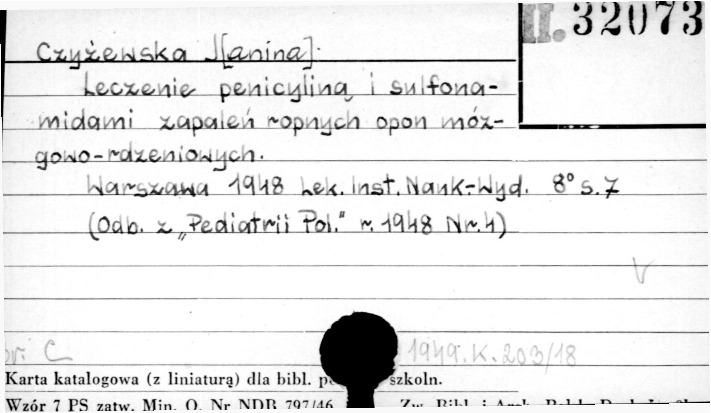 II. 32073
Czyżewska J[anina].
Leczenie penicyliną i sulfona-
midami zapaleń ropnych opon móz-
gowo-rdzeniowych.
Warszawa 1948 Lek. Inst. Nauk-Wyd. 8° s. 7
(Odb. z „Pediatrii Pol." r. 1948 Nr. 4)
V
C 1949. K. 203/18
Karta katalogowa (z liniaturą) dla bibl. szkoln.
Wzór 7 PS zatw. Min. O. Nr NDB 797/46 Zw. Bibl. i Arch.